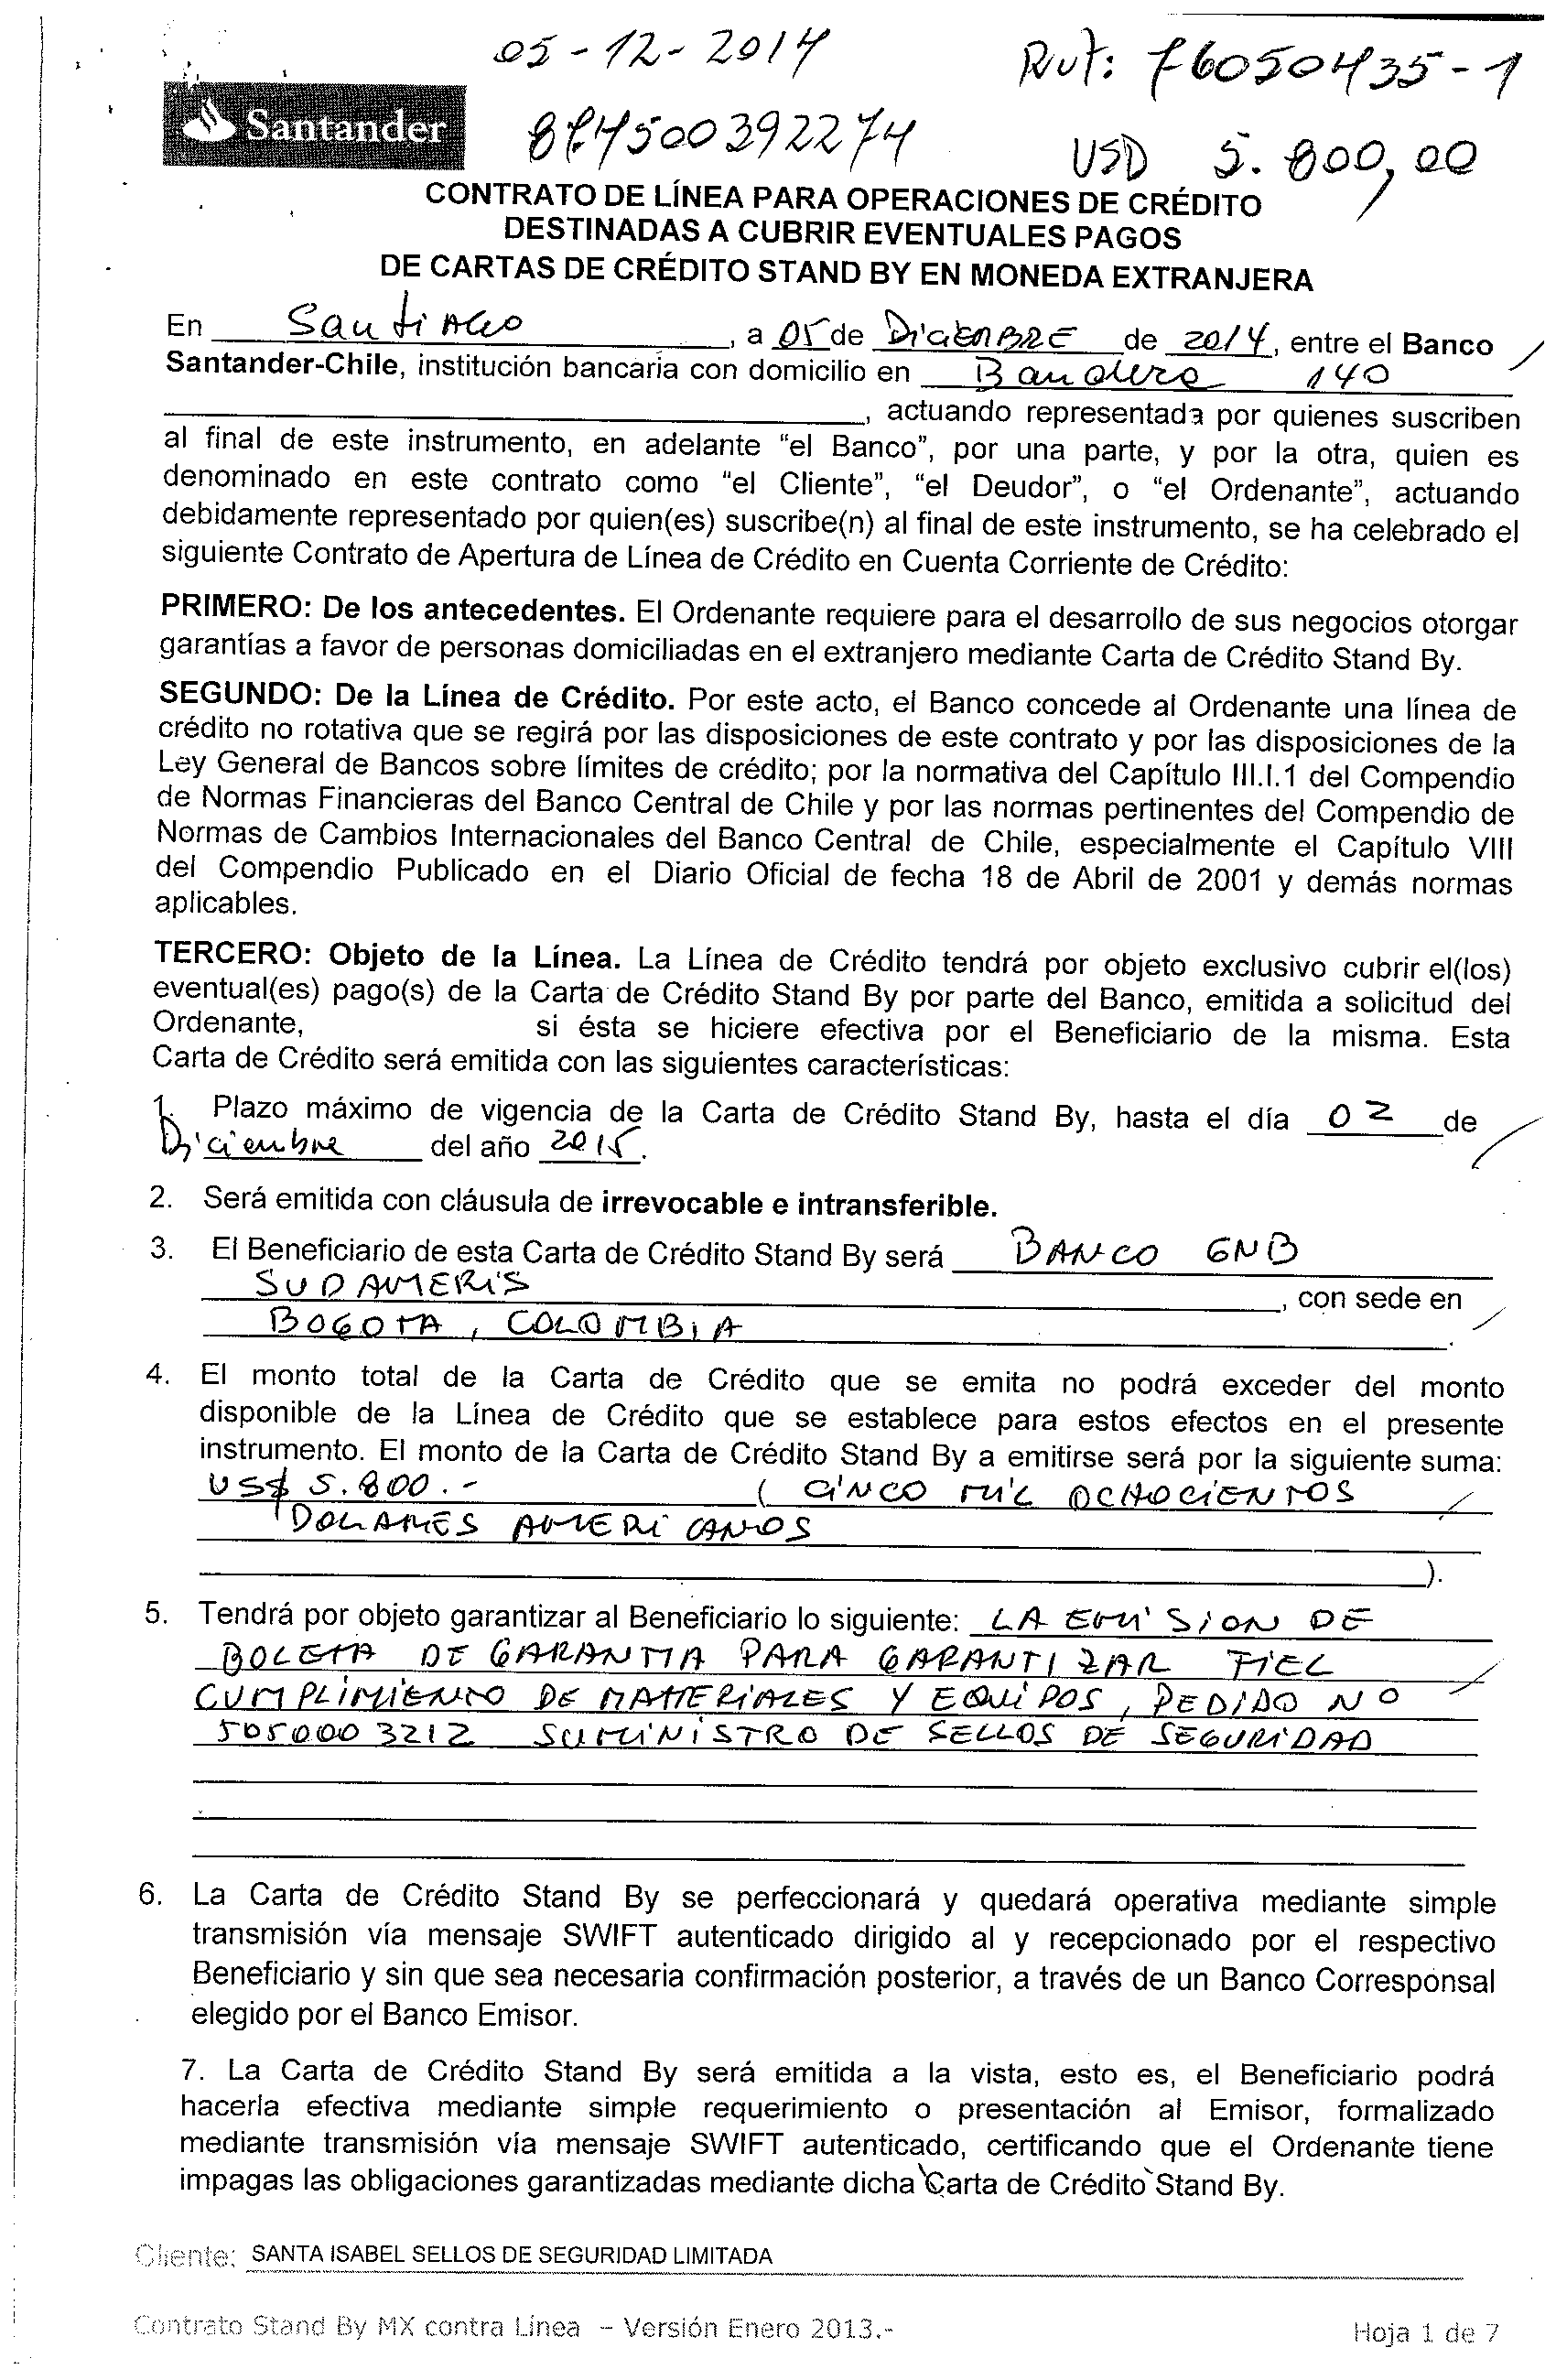 05-12-2014
Rut: 76050435-1
Santander
USD 5.800,00
CONTRATO DE LÍNEA PARA OPERACIONES DE CRÉDITO
DESTINADAS A CUBRIR EVENTUALES PAGOS
DE CARTAS DE CRÉDITO STAND BY EN MONEDA EXTRANJERA
En Santiago, a 05 de Diciembre de 2014, entre el Banco
Santander-Chile, institución bancaria con domicilio en Bandera 140
, actuando representada por quienes suscriben
al final de este instrumento, en adelante “el Banco”, por una parte, y por la otra, quien es
denominado en este contrato como “el Cliente”, “el Deudor”, o “el Ordenante”, actuando
debidamente representado por quien(es) suscribe(n) al final de este instrumento, se ha celebrado el
siguiente Contrato de Apertura de Línea de Crédito en Cuenta Corriente de Crédito:
PRIMERO: De los antecedentes. El Ordenante requiere para el desarrollo de sus negocios otorgar
garantías a favor de personas domiciliadas en el extranjero mediante Carta de Crédito Stand By.
SEGUNDO: De la Línea de Crédito. Por este acto, el Banco concede al Ordenante una línea de
crédito no rotativa que se regirá por las disposiciones de este contrato y por las disposiciones de la
Ley General de Bancos sobre límites de crédito; por la normativa del Capítulo III.I.1 del Compendio
de Normas Financieras del Banco Central de Chile y por las normas pertinentes del Compendio de
Normas de Cambios Internacionales del Banco Central de Chile, especialmente el Capítulo VIII
del Compendio Publicado en el Diario Oficial de fecha 18 de Abril de 2001 y demás normas
aplicables.
TERCERO: Objeto de la Línea. La Línea de Crédito tendrá por objeto exclusivo cubrir el(los)
eventual(es) pago(s) de la Carta de Crédito Stand By por parte del Banco, emitida a solicitud del
Ordenante, si ésta se hiciere efectiva por el Beneficiario de la misma. Esta
Carta de Crédito será emitida con las siguientes características:
1. Plazo máximo de vigencia de la Carta de Crédito Stand By, hasta el día 02 de
Diciembre del año 2015.
2. Será emitida con cláusula de irrevocable e intransferible.
3. El Beneficiario de esta Carta de Crédito Stand By será BANCO GNB
SUDAMERIS, con sede en
BOGOTA, COLOMBIA.
4. El monto total de la Carta de Crédito que se emita no podrá exceder del monto
disponible de la Línea de Crédito que se establece para estos efectos en el presente
instrumento. El monto de la Carta de Crédito Stand By a emitirse será por la siguiente suma:
US$ 5.800.- (CINCO MIL OCHOCIENTOS
DOLARES AMERICANOS
).
5. Tendrá por objeto garantizar al Beneficiario lo siguiente: LA EMISION DE
BOLETA DE GARANTIA PARA GARANTIZAR FIEL
CUMPLIMIENTO DE MATERIALES Y EQUIPOS, PEDIDO Nº
5050003212 SUMINISTRO DE SELLOS DE SEGURIDAD
6. La Carta de Crédito Stand By se perfeccionará y quedará operativa mediante simple
transmisión vía mensaje SWIFT autenticado dirigido al y recepcionado por el respectivo
Beneficiario y sin que sea necesaria confirmación posterior, a través de un Banco Corresponsal
elegido por el Banco Emisor.
7. La Carta de Crédito Stand By será emitida a la vista, esto es, el Beneficiario podrá
hacerla efectiva mediante simple requerimiento o presentación al Emisor, formalizado
mediante transmisión vía mensaje SWIFT autenticado, certificando que el Ordenante tiene
impagas las obligaciones garantizadas mediante dicha Carta de Crédito Stand By.
Cliente: SANTA ISABEL SELLOS DE SEGURIDAD LIMITADA
Contrato Stand By MX contra Línea – Versión Enero 2013.-
Hoja 1 de 7